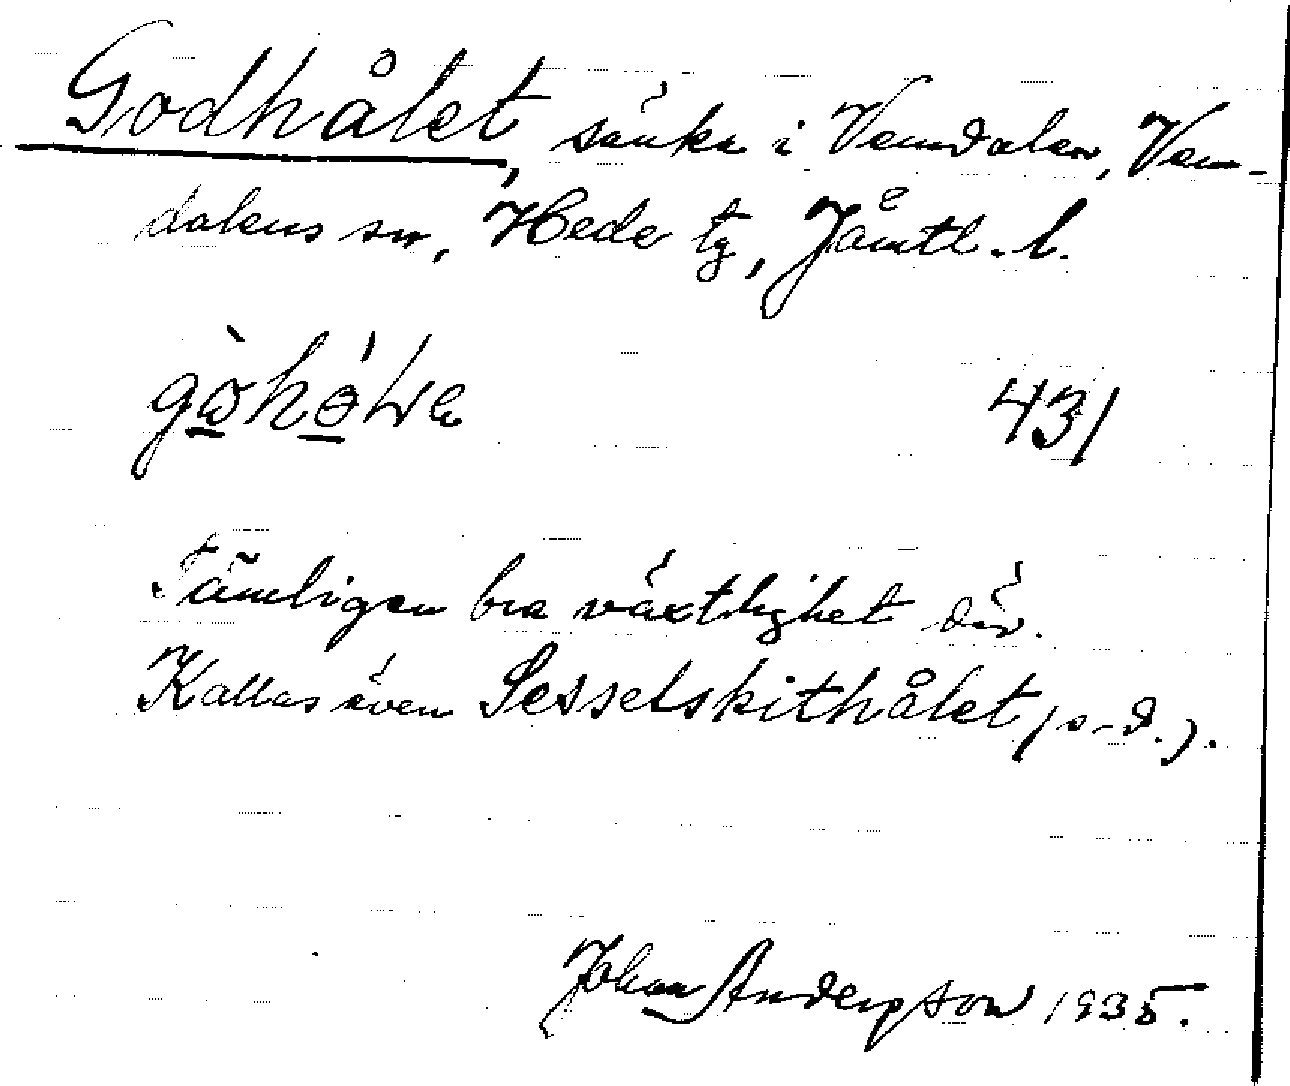 Godhålet, sänka i Vemdalen, Vem-
dalens sn, Hede tg, Jämtl. l.
431
Tämligen bra växtlighet där.
Kallas även Sesselskithålet (s-d.).
Johan Anderson 1935.